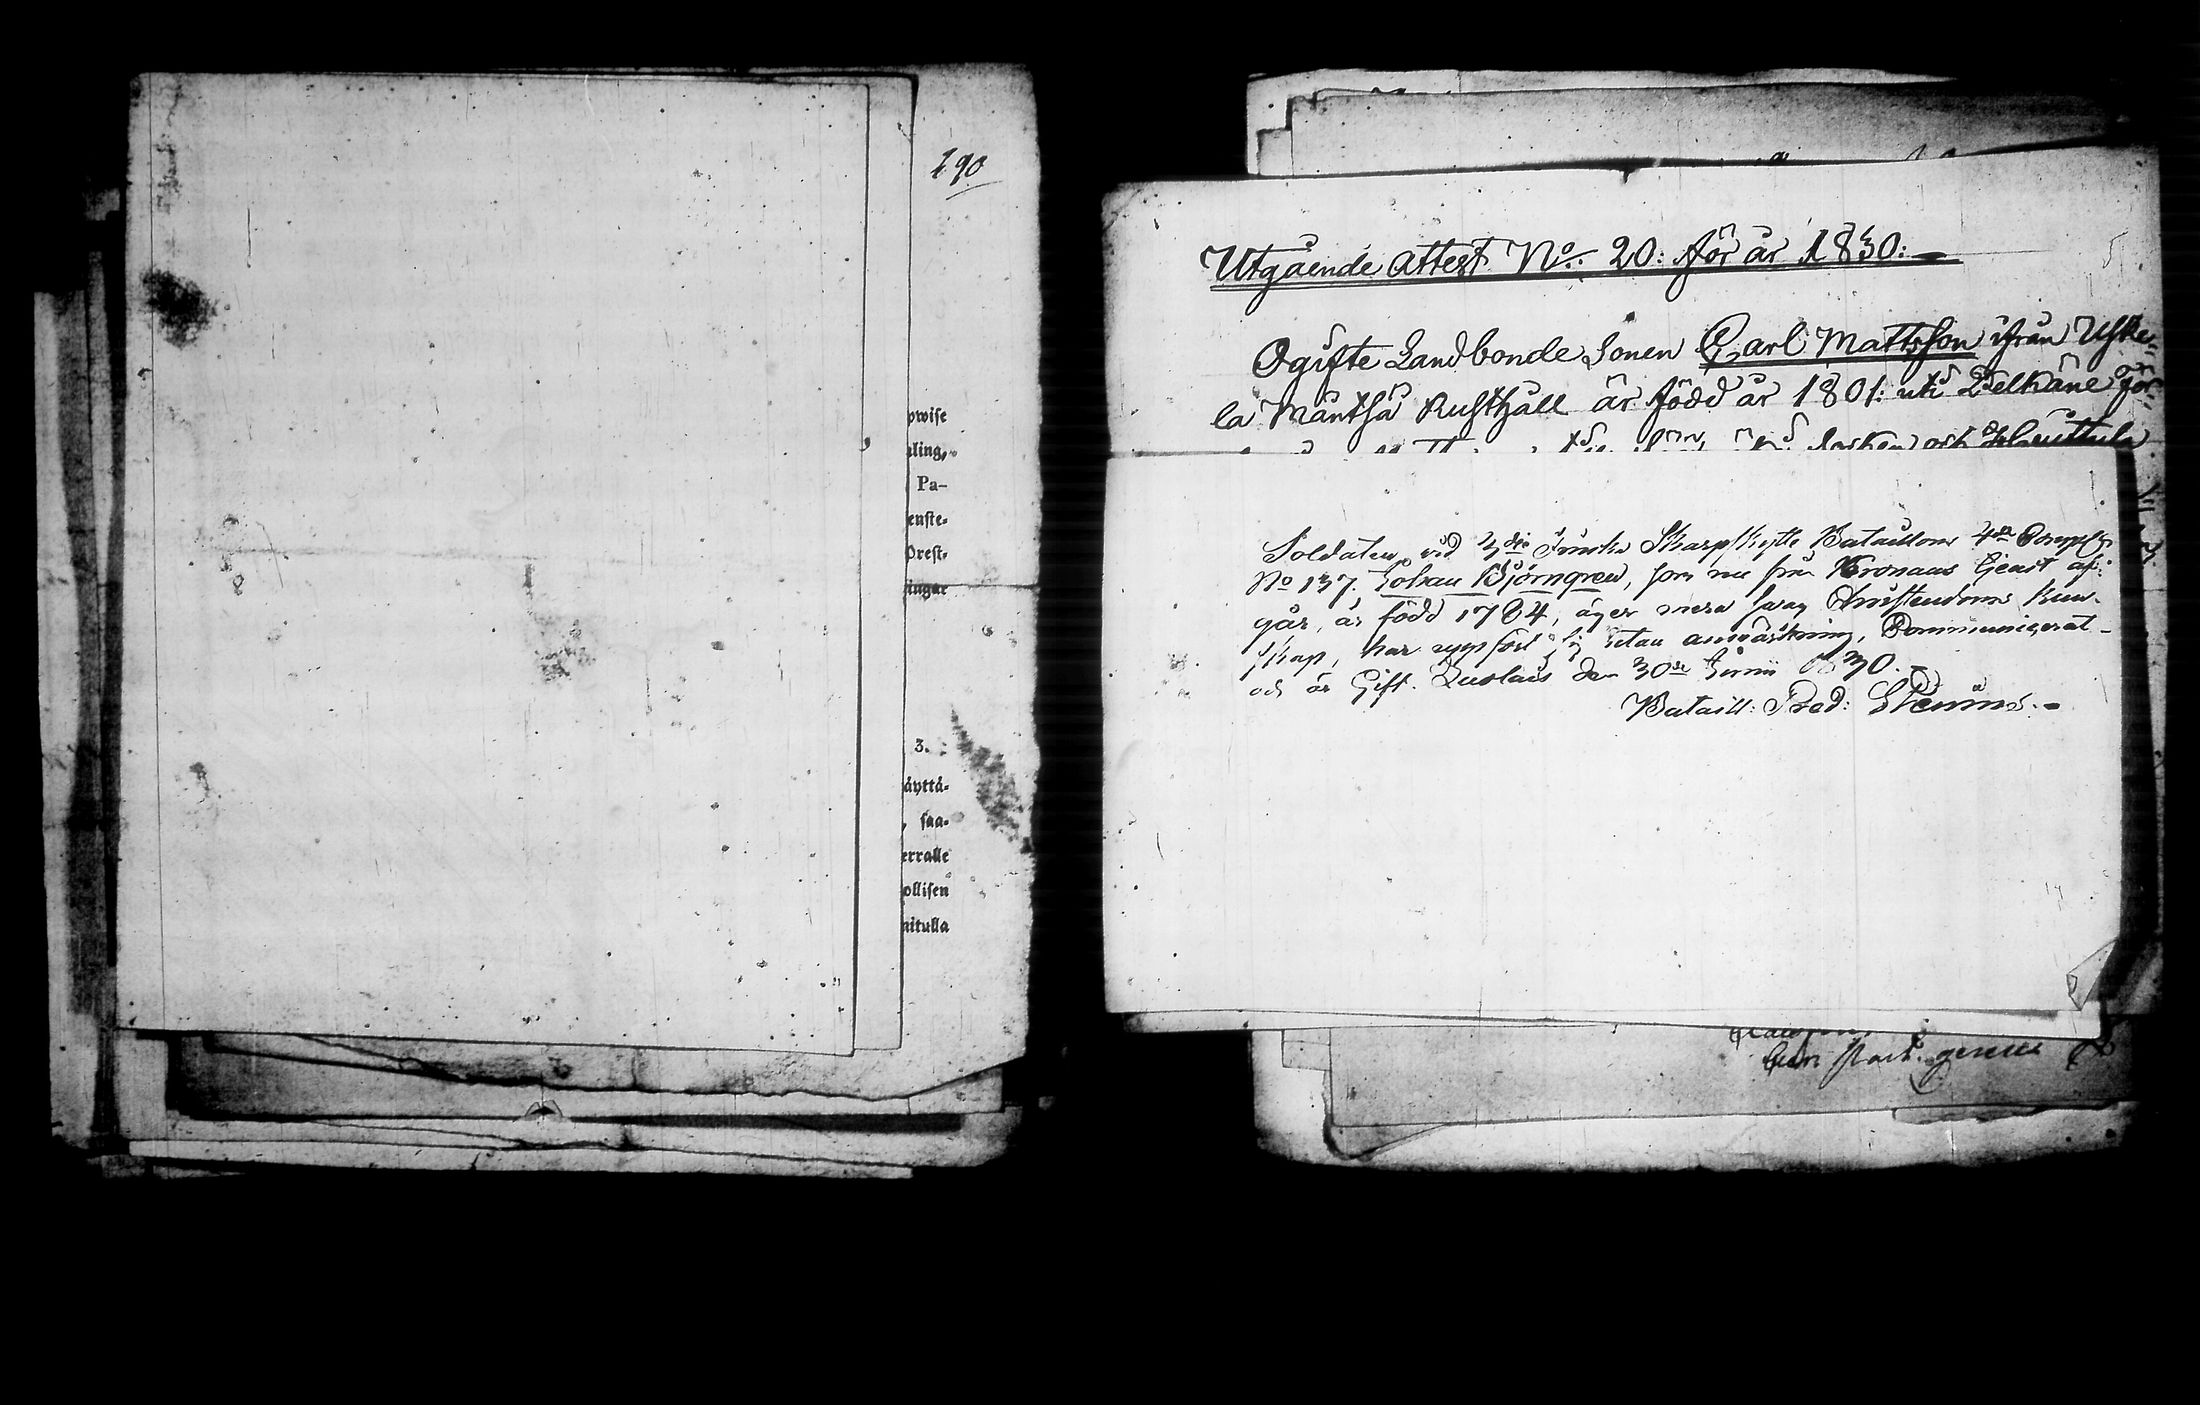 190
pwise
ling,
Pa-
enste-
Orest-
ingar
3.
äyttä-
, saa-
erralle
ollisen
nitulla
Utgående Attest No. 20: för år 1830:
Ogifte Landbonde Sonen Carl Mattsson ifrån Uske-
la Mäntsä Rusthåll är född år 1801: uti Pelkäne
Soldaten vid 3die Finska Skarpskytte Bataillons 4de Compagn
No 137. Johan Björngren, som nu från Kronans tjenst af-
går, är född 1784, äger svag Christendoms kun-
skap, har uppfört sig utan anmärkning, Communicerat
och är Gift. Den 30de Junii 1830.
Bataill: Pred: Stenius.